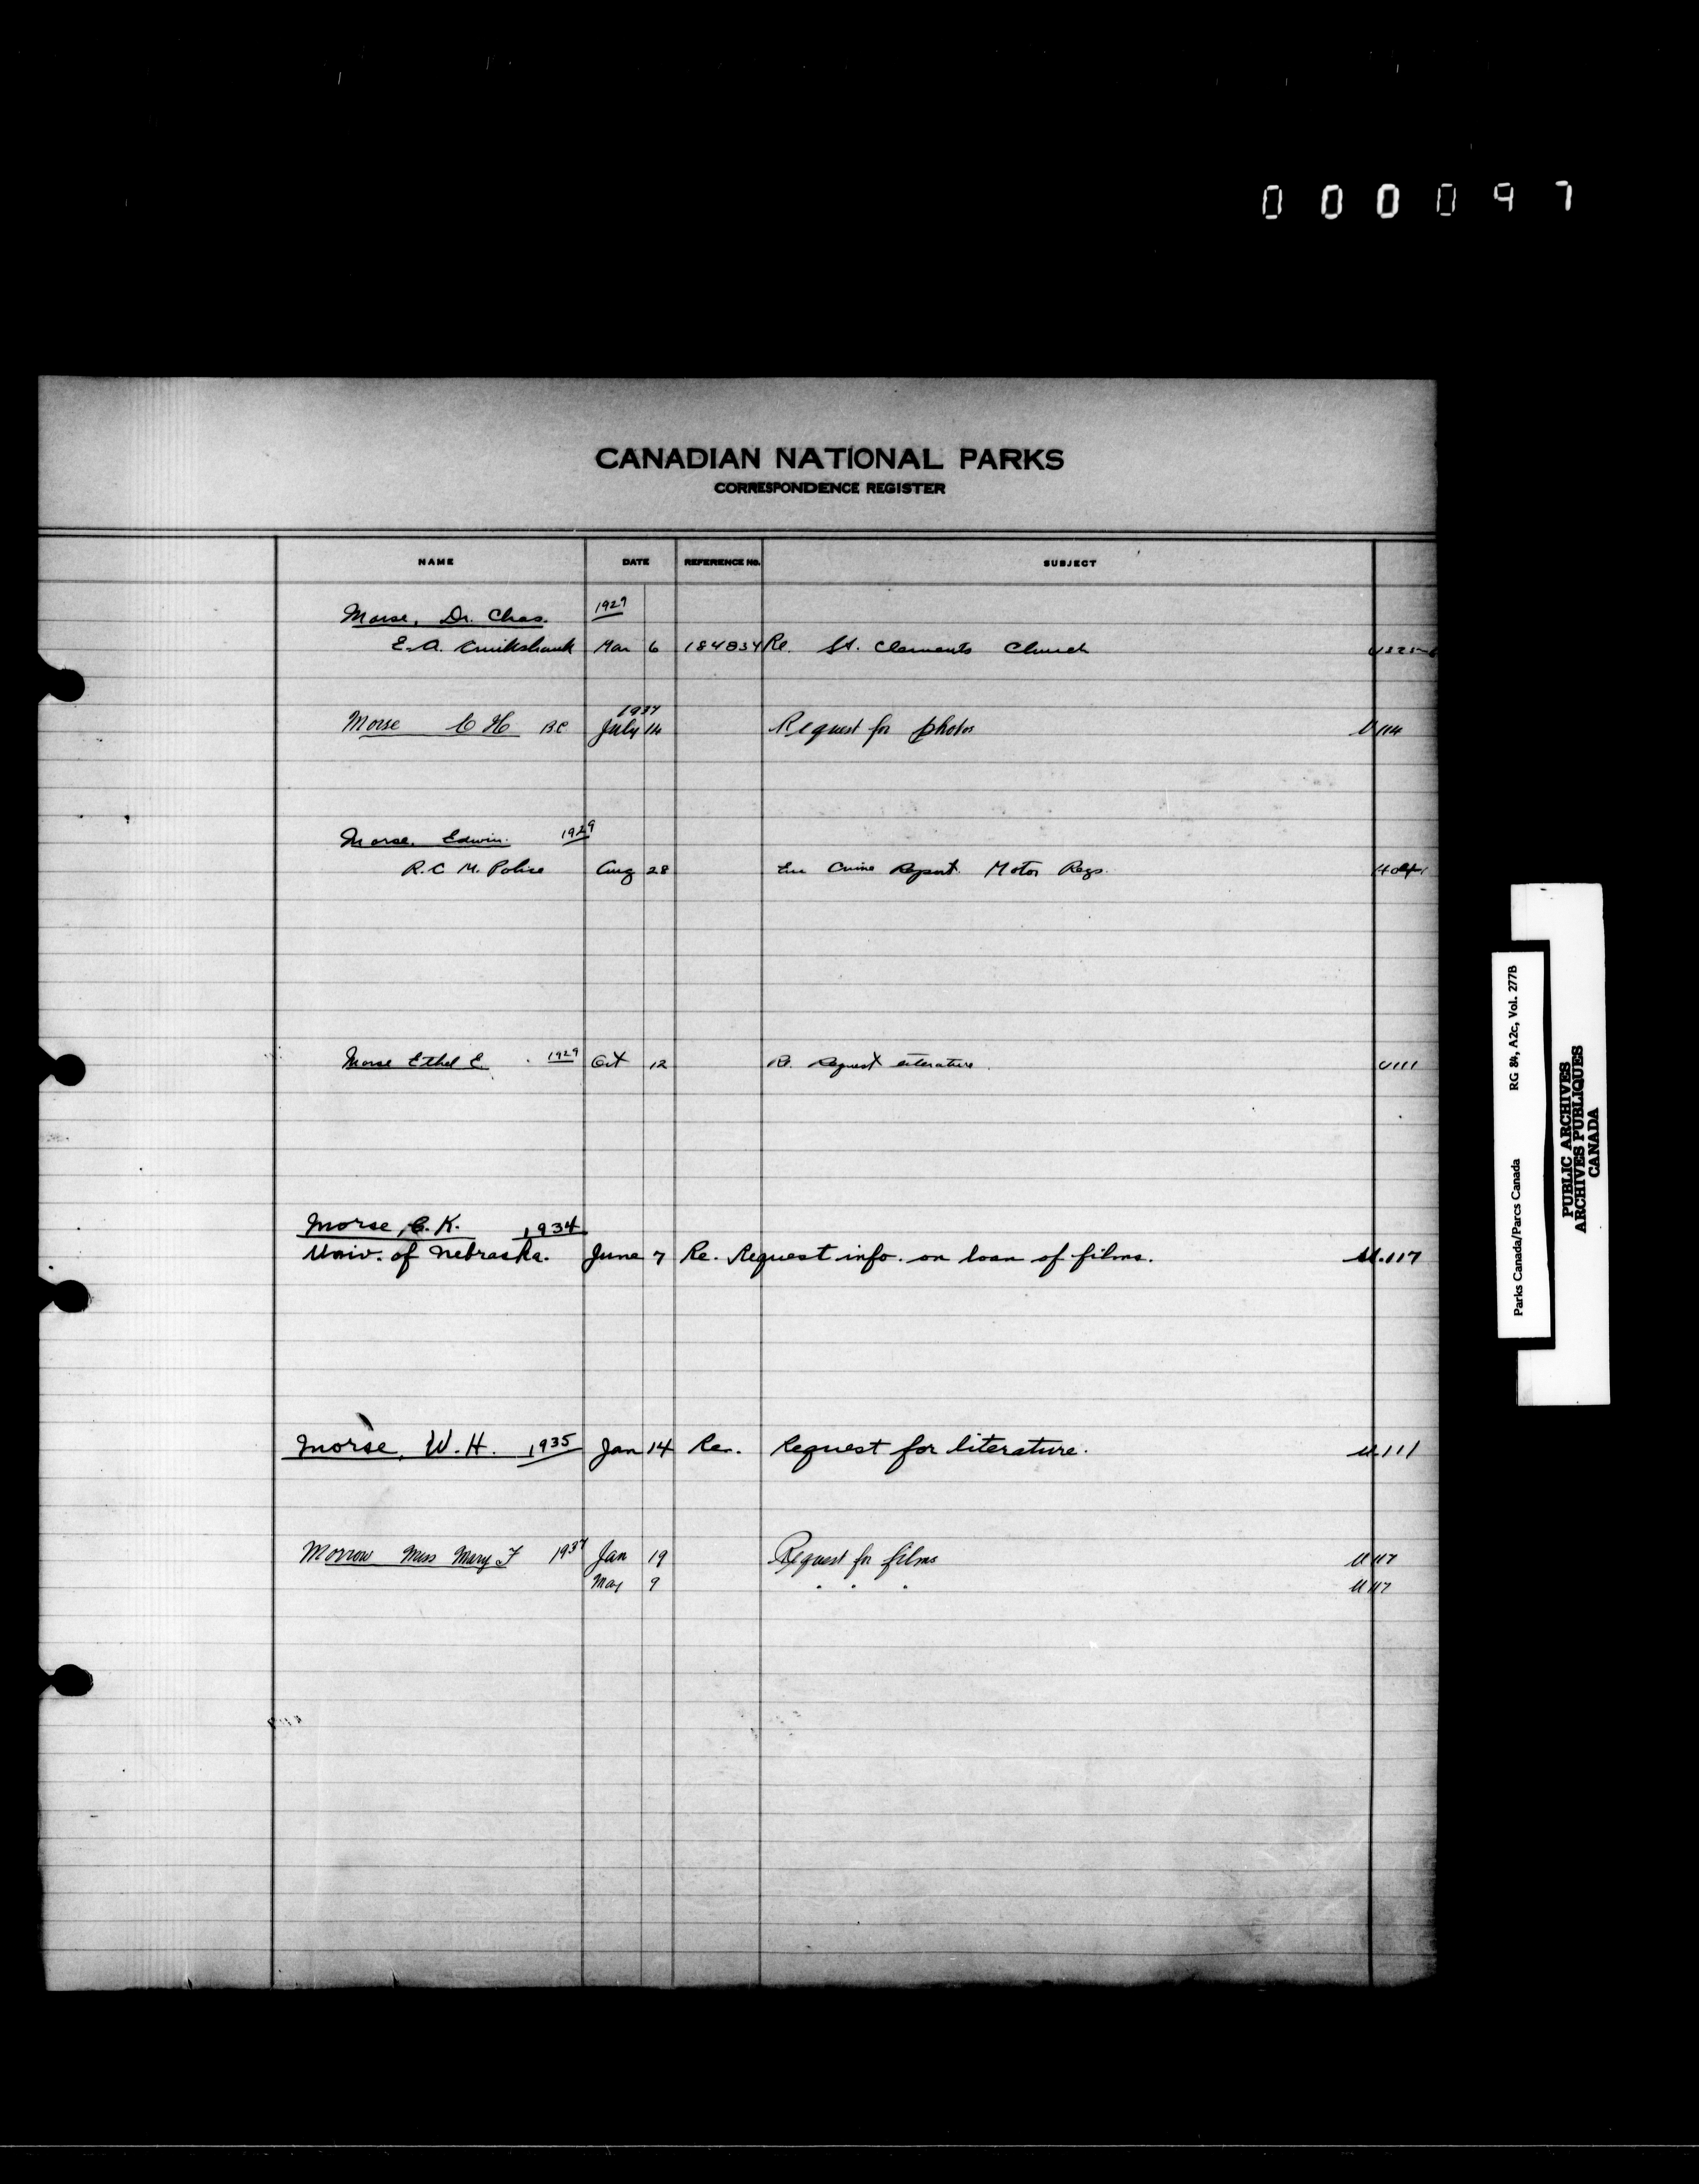 000097
CANADIAN NATIONAL PARKS
CORRESPONDENCE REGISTER
NAME DATE REFERENCE No. SUBJECT
Morse, Dr. Chas. 1929
E.A. Cruikshank Mar 6 184834 Re. St. Clements Church
1937
Morse C H B.C July 14 Request for photos U 114
Morse, Edwin. 1929
R.C.M. Police Aug 28 Crime Report. Motor Regs.
Morse Ethel E. 1929 Oct 12 Re. Request literature. U111
Morse, C. K. 1934
Univ. of Nebraska. June 7 Re. Request info. on loan of films. U.117
Morse, W.H. 1935 Jan 14 Re. Request for literature. U.111
Morrow Miss Mary F 1937 Jan 19 Request for films U 117
9 " " " U 117
Parks Canada/Parcs Canada RG 84, A2c, Vol. 277B
PUBLIC ARCHIVES
ARCHIVES PUBLIQUES
CANADA